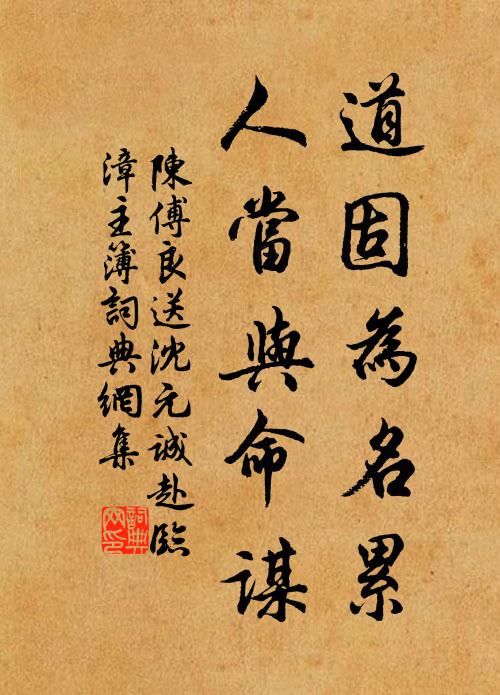 道固為名累
人當與命謀
陳傅良送沈元誠赴臨
漳主簿詞典網集
詞典
网印